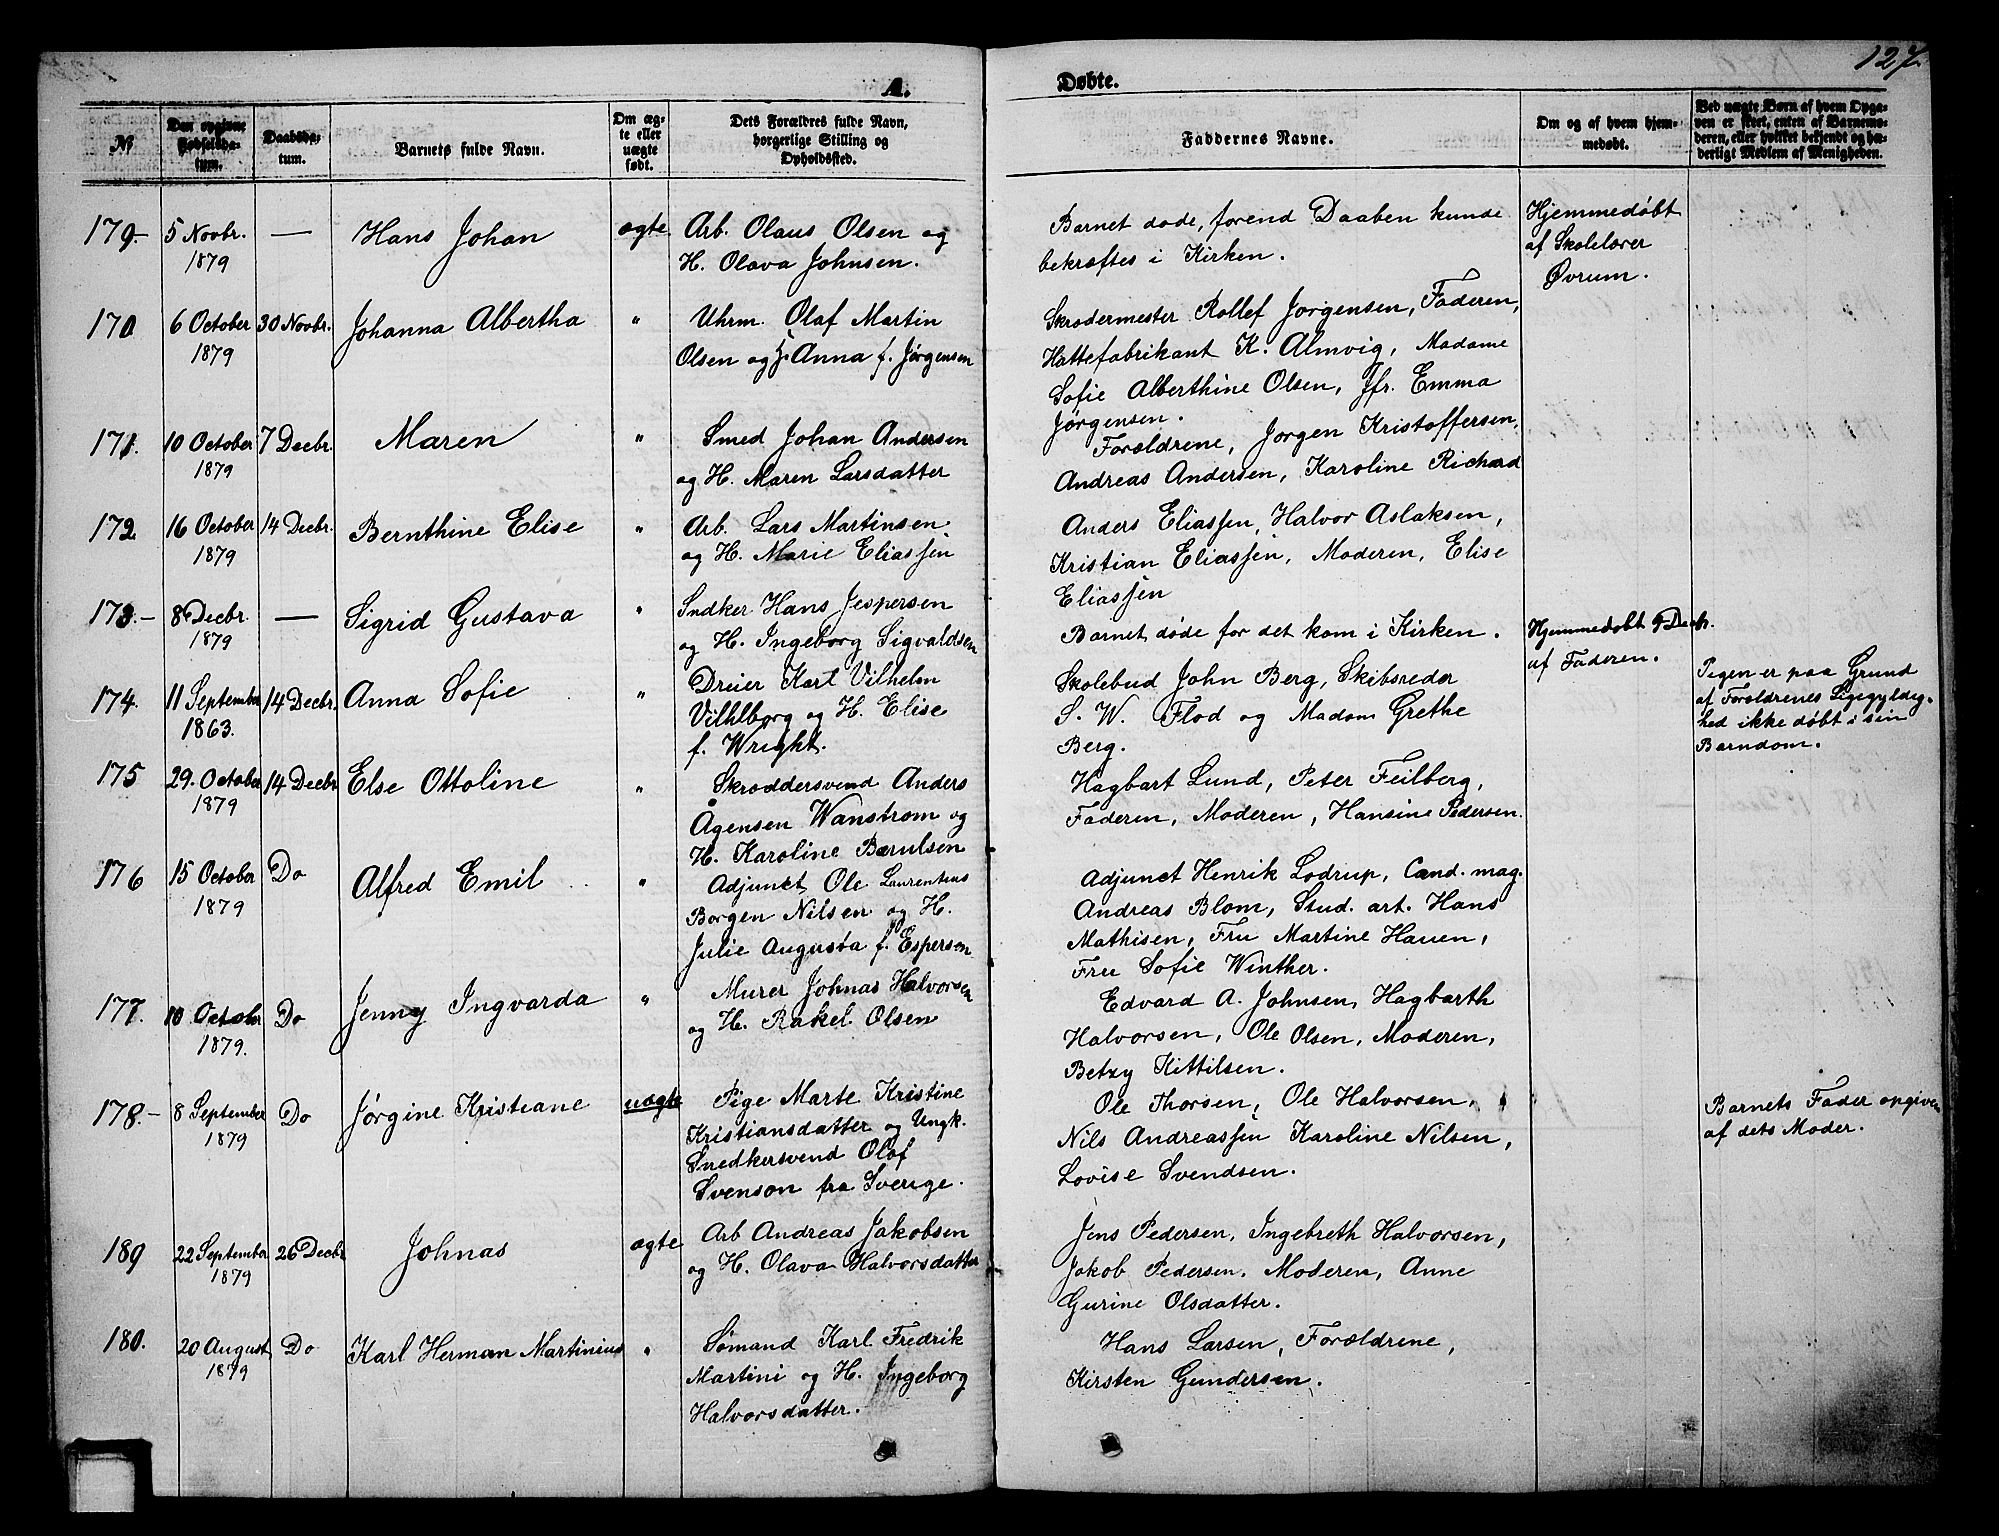 127.
A.
Døbte.
№
Den opgivne Fødselsda-tum.
Daabsda-tum.
Barnets fulde Navn.
Om æg-te eller uægte født.
Dets Forældres fulde Navn, borgerlige Stilling og Opholdssted.
Faddernes Navne.
Om og af hvem hjem-medøbt.
Ved uægte Børn af hvem Opga-ven er skeet, enten af Barnemo-deren, eller hvilket bekjendt og hæ-derligt Medlem af Menigheden.
179.- 5 Novbr. 1879 — Hans Johan ægte
Arb. Olaus Olsen og
H. Olava Johnsen.
Barnet døde, førend Daaben kunde
bekræftes i Kirken.
Hjemmedøbt
af Skolelærer
Øvrum.
170 6 October 1879 30 Novbr. Johanna Albertha "
Uhrm. Olaf Martin
Olsen og H. Anna f. Jørgensen
Skrædermester Rollef Jørgensen, Faderen,
Hattefabrikant K. Almvig, Madame
Sofie Alberthine Olsen, Jfr. Emma
Jørgensen.
171. 10 October 1879 7 Decbr. Maren "
Smed Johan Andersen
og H. Maren Larsdatter
Forældrene, Jørgen Kristoffersen,
Andreas Andersen, Karoline Richard
172 16 October 1879 14 Decbr. Bernthine Elise "
Arb. Lars Martinsen
og H. Marie Eliassen
Anders Eliassen, Halvor Aslaksen,
Kristian Eliassen, Moderen, Elise
Eliassen
173.- 8 Decbr. 1879 — Sigrid Gustava "
Sndker Hans Jespersen
og H. Ingeborg Sigvaldsen
Barnet døde før det kom i Kirken.
Hjemmedøbt 9 Decbr.
af Faderen.
174. 11 September 1863. 14 Decbr. Anna Sofie "
Dreier Karl Vilhelm
Vilhlborg og H. Elise
f. Wright.
Skolebud John Berg, Skibsreder
S. W. Flod og Madam Grethe
Berg.
Pigen er paa Grund
af Forældrenes Ligegyldig-
hed ikke døbt i sin
Barndom.
175 29. October 1879 14 Decbr Else Ottoline "
Skræddersvend Anders
Ågensen Wanstrøm og
H. Karoline Bærulsen
Hagbart Lund, Peter Feilberg,
Faderen, Moderen, Hansine Pedersen.
176 15 October 1879 Do Alfred Emil "
Adjunct Ole Laurentius
Borgen Nilsen og H.
Julie Augusta f. Espersen
Adjunct Henrik Lødrup, Cand. mag.
Andreas Blom, Stud. art. Hans
Mathisen, Fru Martine Hauen,
Fru Sofie Winther.
177. 10 October 1879. Do Jenny Ingvarda "
Murer Johnas Halvorsen
og H. Rakel Olsen
Edvard A. Johnsen, Hagbarth
Halvorsen, Ole Olsen, Moderen,
Betzy Kittilsen.
178.- 8 September 1879 Do Jørgine Kristiane uægte
Pige Marte Kristine
Kristiansdatter og Ungk.
Snedkersvend Olof
Svenson fra Sverige.
Ole Thorsen, Ole Halvorsen,
Nils Andreassen Karoline Nilsen,
Lovise Svendsen.
Barnets Fader opgiven
af dets Moder.
189 22 September 1879 26 Decbr Johnas ægte
Arb Andreas Jakobsen
og H. Olava Halvorsdatter
Jens Pedersen, Ingebreth Halvorsen,
Jakob Pedersen, Moderen, Anne
Gurine Olsdatter.
180. 20 August 1879 Do Karl Herman Martinius "
Sømand Karl Fredrik
Martini og H. Ingeborg
Halvorsdatter.
Hans Larsen, Forældrene,
Kirsten Gundersen.